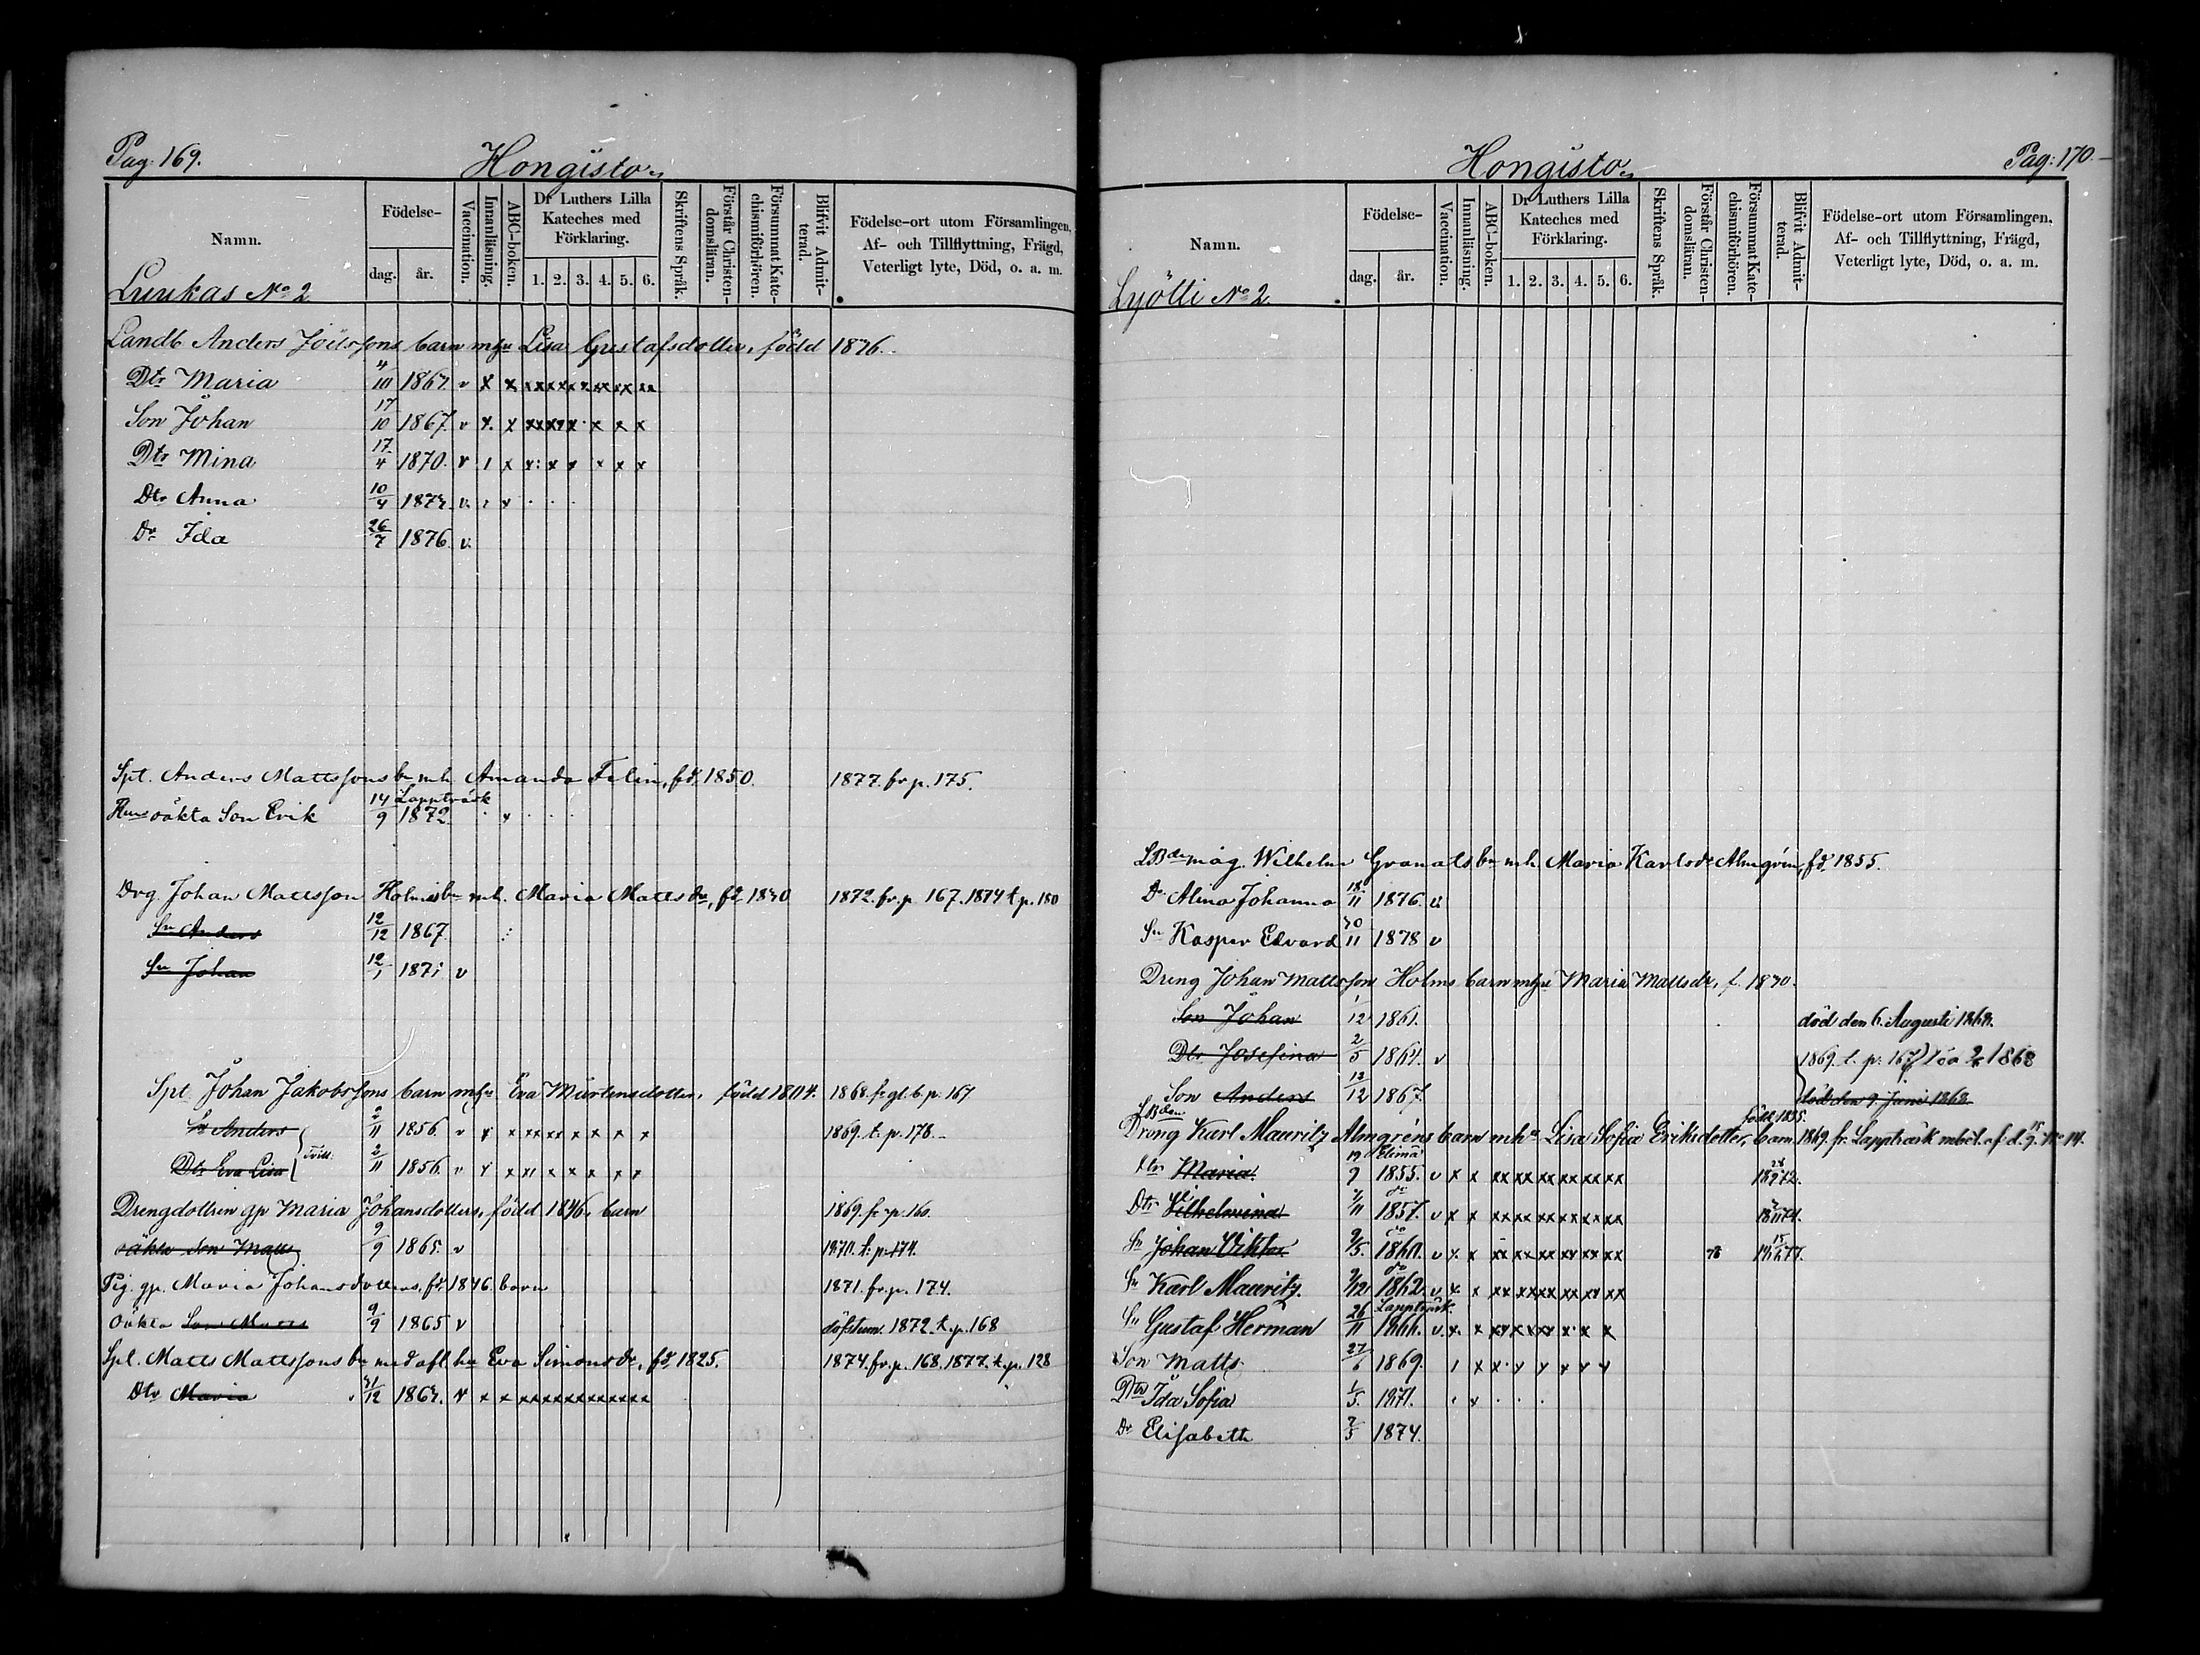 Pag: 169.
Hongisto
Namn.
Födelse-
dag.
år.
Vaccination.
Innanläsning.
ABC-boken.
Dr Luthers Lilla
Kateches med
Förklaring.
1. 2. 3. 4. 5. 6.
Skriftens Språk.
Förstår Christen-
domsläran.
Försummat Kate-
chismiförhören.
Blifvit Admit-
terad.
Födelse-ort utom Församlingen,
Af- och Tillflyttning, Frägd,
Veterligt lyte, Död, o. a. m.
Luukas No 2
Landb Anders barn mhu Lisa Gustafsdotter, född
Dtr Maria
Son Johan 17/10 1867. v
Dtr Mina 17/4 1870. v
Dtr Anna 10/4
Dr Ida 26/7 1876 v.
Spt. Anders Mattssons bn mh Amanda Felin, fd. 1850. 1877. fr p. 175.
Lappträsk
Hens oäkta Son Erik 14/9 1872
Drg. Johan Mattsson Holms bn mh. Maria Mattsdr, fd 1872. fr. p 167. 1874 t p. 180
Sn Anders 12/12 1867
Sn Johan 12/1 v
Spt. Johan Jakobssons barn mhu Eva Mårtensdotter, född 1804. 1868. fr gl. b. p. 167
Sn Anders 2/11 1856. v 1869. t. p. 178.
Dtr Eva Lisa 2/11 1856. v
Drengdottren gp Maria Johansdotters, född 1846, barn 1869. fr p. 160.
oäkta Son Matts 9/9 1865. v 1870. t. p. 174.
Pig. gp. Maria Johansdotters, fd. 1846. barn 1871. fr. p. 174.
Oäkta Son Matts 9/9 1865 v döfstum. 1872. t. p. 168
Spt. Matts Mattssons bn med afl. hu Eva Simonsdr, fd. 1825. 1874. fr. p. 168. 1877. t. p. 128
Dtr Maria
Hongisto
Pag: 170.
Namn.
Födelse-
dag.
år.
Vaccination.
Innanläsning.
ABC-boken.
Dr Luthers Lilla
Kateches med
Förklaring.
1. 2. 3. 4. 5. 6.
Skriftens Språk.
Förstår Christen-
domsläran.
Försummat Kate-
chismiförhören.
Blifvit Admit-
terad.
Födelse-ort utom Församlingen,
Af- och Tillflyttning, Frägd,
Veterligt lyte, Död, o. a. m.
Lyötti No 2
måg. Wilhelm Granats bn mh. Maria Karlsdr Almgrén, fd. 1855.
Dr Alma Johanna 18/11 1876. v
Sn Kasper Edvard 1878 v
Dreng Johan Mattsson Holms barn mhu Maria Mattsdr, f.
Son Johan 1/12 1861. död den 6. Augusti
Dtr Josefina 2/5 1864. v 1869. t. p. 167
Son Anders 12/12 1867. död den 9. Juni 1868.
född 1835.
Dreng Karl Mauritz Almgréns barn mhu Lisa Sofia Eriksdotter, barn 1869. fr. Lappträsk
Elimä
Dtr Maria 19/9 1855. v
Dtr Vilhelmina 1857. v
Sn Johan Viktor 9/5. 1860. v
Sn Karl Mauritz. 9/12 1862. v
Lappträsk
Sn Gustaf Herman 26/11 1866. v.
Son Matts 27/6 1869.
Dtr Ida Sofia 1/5. 1871.
Dr Elisabeth 2/5 1874.